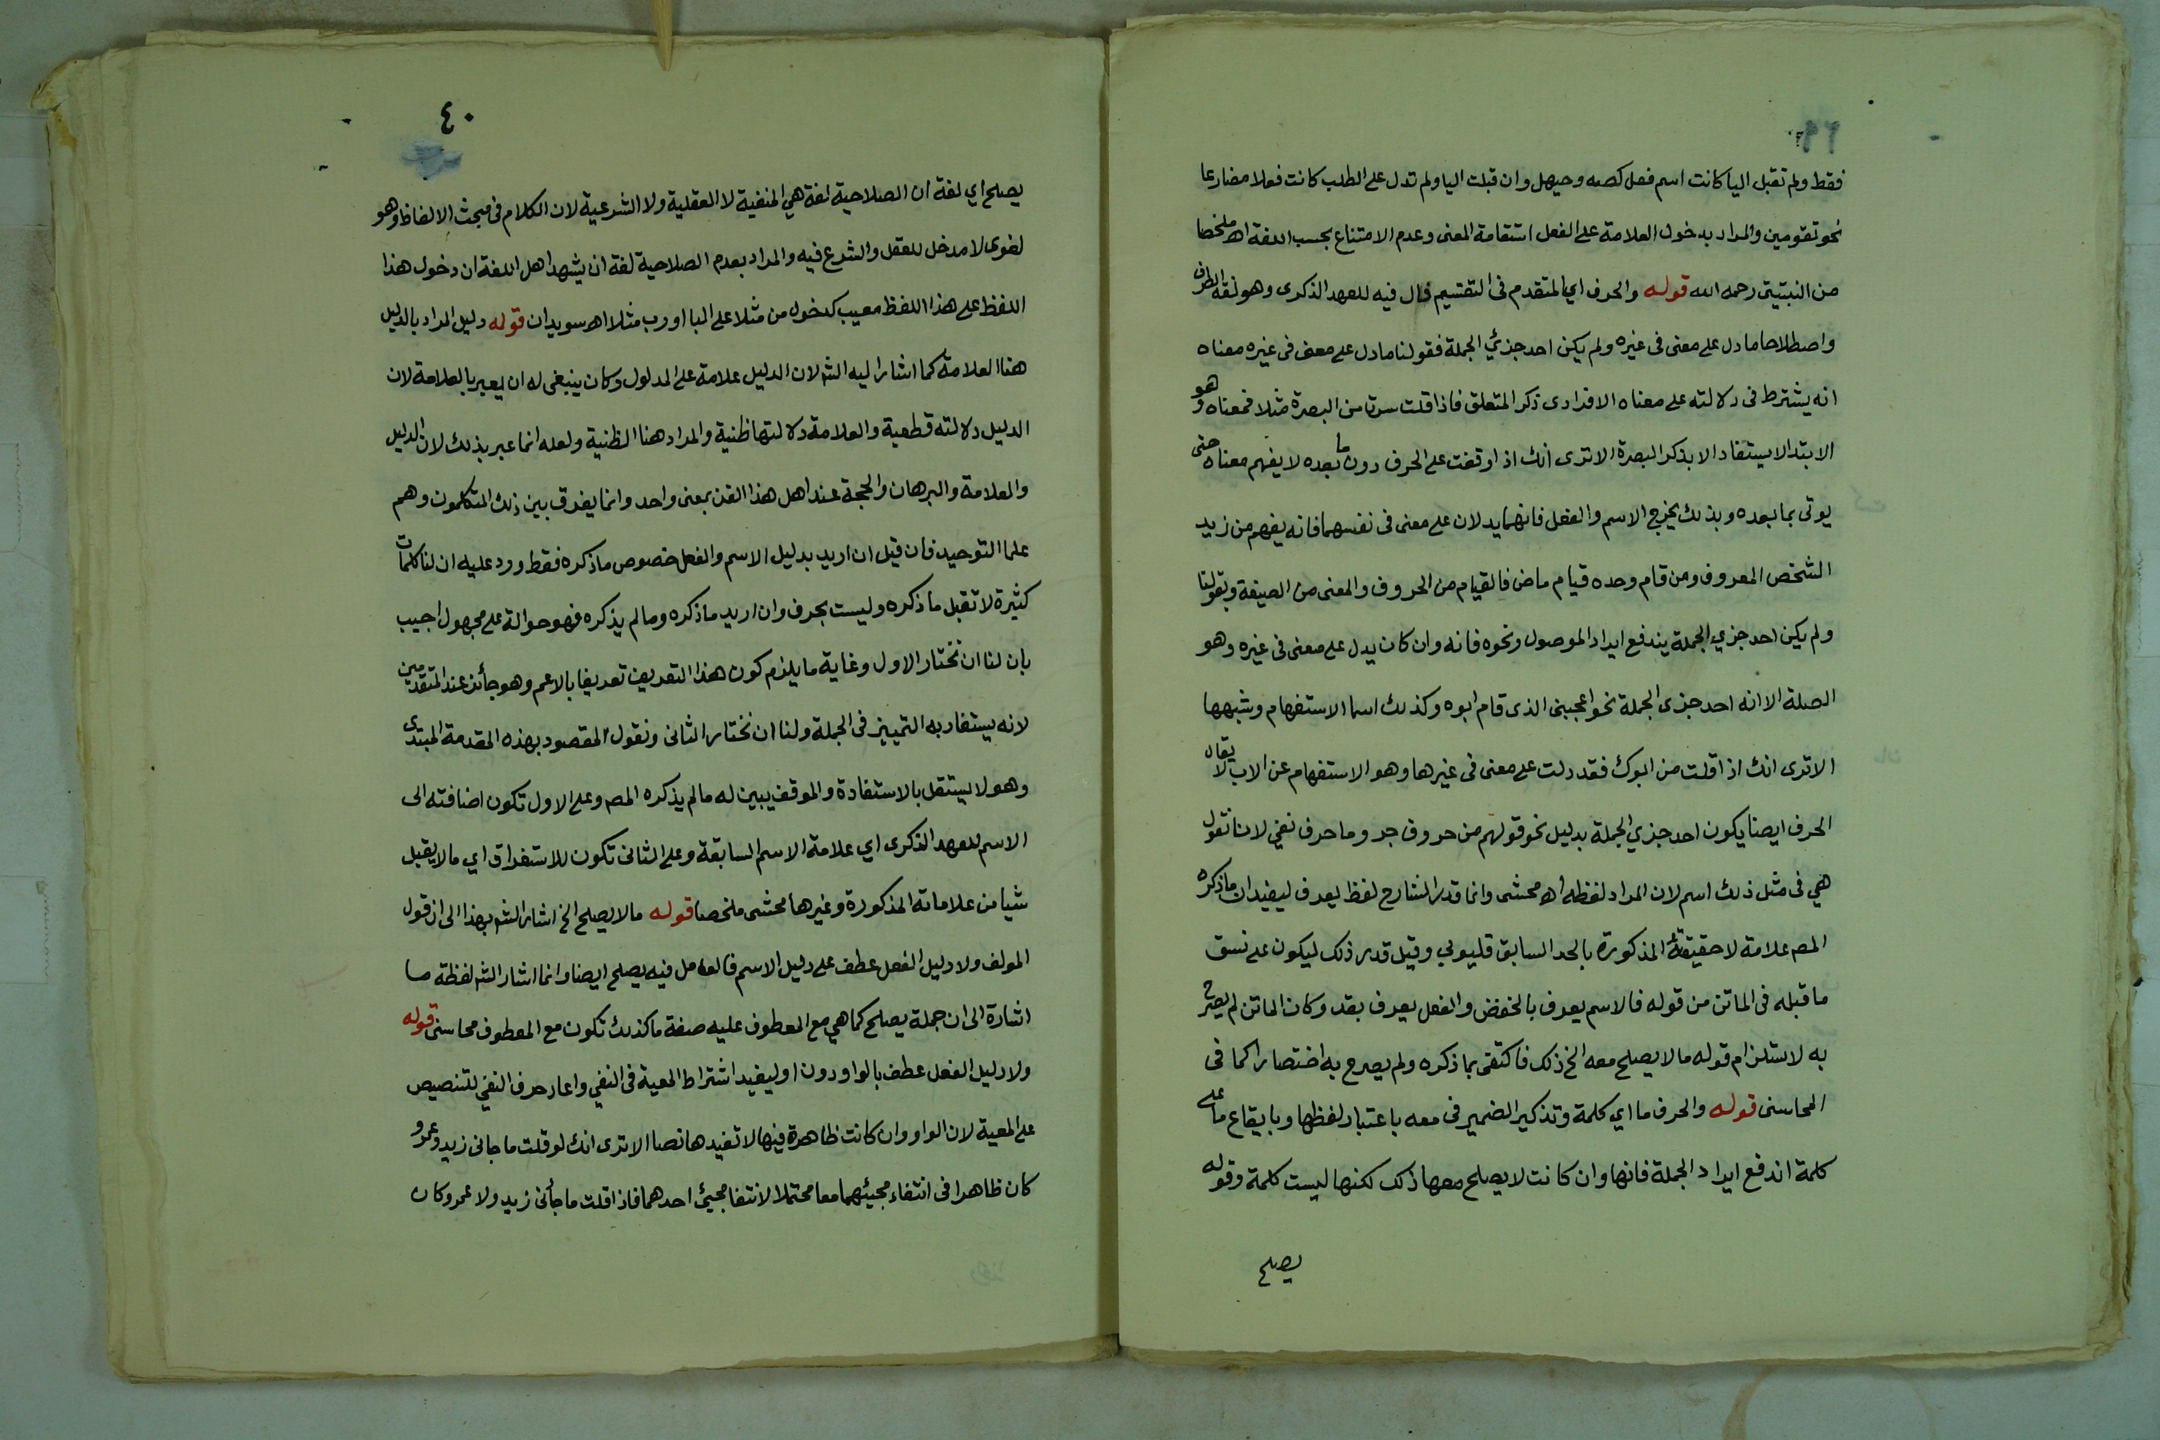 ٣٩
فقط ولم تقبل اليا كانت اسم فعل كصه وحيهل وان قبلت اليا ولم تدل على الطلب كانت فعلا مضارعا
نحو تقومين والمراد بدخول العلامة على الفعل استقامة المعنى وعدم الامتناع بحسب اللغة اهـ ملخصا
من النبتيتي رحمه الله قوله والحرف اي المتقدم في التقسيم فال فيه للعهد الذكرى وهو لغة الطرف
واصطلاحا ما دل على معنى فى غيره ولم يكن احد جزئي الجملة فقولنا ما دل على معنى فى غيره معناه
انه يشترط فى دلالته على معناه الافرادى ذكر المتعلق فاذا قلت سرت من البصرة مثلا فمعناه وهو
الابتدا لا يستفاد الا بذكر البصرة الا ترى انك اذا وقفت على الحرف دون ما بعده لا يفهم معناه حتى
يوتى بما بعده وبذلك يخرج الاسم والفعل فانهما يدلان على معنى فى نفسهما فانه يفهم من زيد
الشخص المعروف ومن قام وحده قيام ماض فالقيام من الحروف والمعنى من الصيغة وبقولنا
ولم يكن احد جزي الجملة يندفع ايراد الموصول ونحوه فانه وان كان يدل على معنى فى غيره وهو
الصلة الا انه احد جزى الجملة نحو اعجبنى الذى قام ابوه وكذلك اسما الاستفهام وشبهها
الا ترى انك اذا قلت من ابوك فقد دلت على معنى فى غيرها وهو الاستفهام عن الاب لا يقال
الحرف ايضا يكون احد جزي الجملة بدليل نحو قولهم من حروف جر وما حرف نفي لانا نقول
هي فى مثل ذلك اسم لان المراد لفظه اهـ محشى وانما قدر الشارح لفظ يعرف ليفيد ان ما ذكره
المص علامة لا حقيقته المذكورة بالحد السابق قليوبي وقيل قدر ذلك ليكون على نسق
ما قبله فى الماتن من قوله فالاسم يعرف بالخفض والفعل يعرف بقد وكان الماتن لم يصرح
به لاستلزام قوله ما لا يصلح معه الخ ذلك فاكتفى بما ذكره ولم يصرح به اختصارا كما فى
المحاسنى قوله والحرف ما اي كلمة وتذكير الضمير فى معه باعتبار لفظها وبايقاع ما على
كلمة اندفع ايراد الجملة فانها وان كانت لا يصلح معها ذلك لكنها ليست كلمة وقوله
يصلح
٤٠
يصلح اي لغة ان الصلاحية لغة هي المنفية لا العقلية ولا الشرعية لان الكلام فى مبحث الالفاظ وهو
لغوى لا مدخل للعقل والشرع فيه والمراد بعدم الصلاحية لغة ان يشهد اهل اللغة ان دخول هذا
اللفظ على هذا اللفظ معيب كدخول من مثلا على البا او رب مثلا اهـ سويدان قوله دليل المراد بالدليل
هنا العلامة كما اشار اليه الش لان الدليل علامة على المدلول وكان ينبغى له ان يعبر بالعلامة لان
الدليل دلالته قطعية والعلامة دلالتها ظنية والمراد هنا الظنية ولعله انما عبر بذلك لان الدليل
والعلامة والبرهان والحجة عند اهل هذا الفن بمعنى واحد وانما يفرق بين ذلك المتكلمون وهم
علما التوحيد فان قيل ان اريد بدليل الاسم والفعل خصوص ما ذكره فقط ورد عليه ان لنا كلمات
كثيرة لا تقبل ما ذكره وليست بحرف وان اريد ما ذكره وما لم يذكره فهو حوالة على مجهول اجيب
بان لنا ان نختار الاول وغاية ما يلزم كون هذا التعريف تعريفا بالاعم وهو جائز عند المتقدمين
لانه يستفاد به التمييز فى الجملة ولنا ان نختار الثانى ونقول المقصود بهذه المقدمة المبتدى
وهو لا يستقل بالاستفادة والموقف يبين له ما لم يذكره المص وعلى الاول تكون اضافته الى
الاسم للعهد الذكرى اي علامة الاسم السابقة وعلى الثانى تكون للاستغراق اي ما لا يقبل
شيا من علاماته المذكورة وغيرها محشى ملخصا قوله ما لا يصلح الخ اشار الش بهذا الى ان قول
المولف ولا دليل الفعل عطف على دليل الاسم فالعامل فيه يصلح ايضا وانما اشار الش لفظة ما
اشارة الى ان جملة يصلح كما هي مع المعطوف عليه صفة ما كذلك تكون مع المعطوف محاسنى قوله
ولا دليل الفعل عطف بالواو دون او ليفيد اشتراط المعية فى النفي واعاد حرف النفي لتنصيص
على المعية لان الواو وان كانت ظاهرة فيها لا تفيدها نصا الا ترى انك لو قلت ما جانى زيد وعمرو
كان ظاهرا فى انتفاء مجيئهما معا محتملا لانتفا مجيئ احدهما فاذا قلت ما جأنى زيد ولا عمرو كان